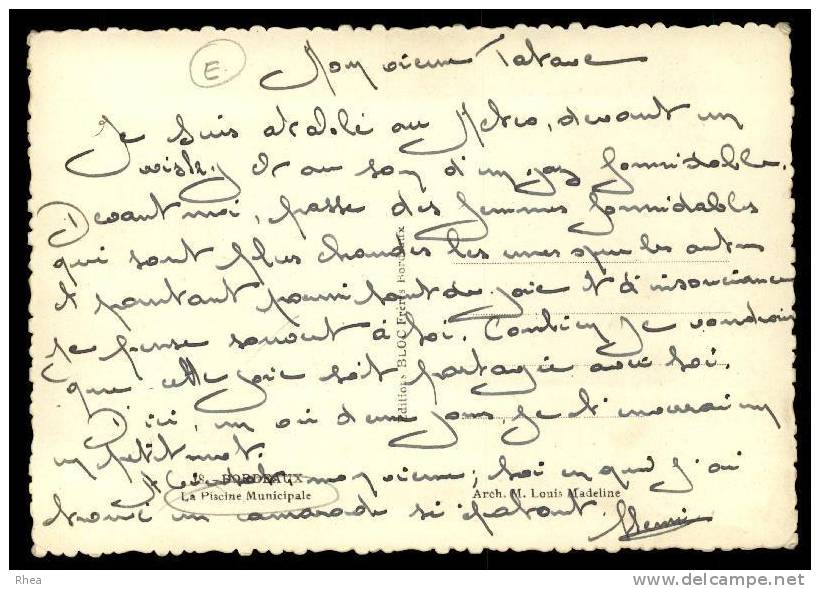 E
Mon vieux Tatave
Je suis attablé au Metro, devant un
wisky et au son d'un jaz formidable.
Devant moi, passe des femmes formidables
qui sont plus chaudes les unes que les autres
Et pourtant parmi tout de joie et d'insouciance
je pense souvent à toi. Combien je voudrais
que cette joie soit partagée avec toi.
D'ici, un ou deux jours, je t'enverrai
un petit mot.
A bientôt mon vieux, toi en qui j'ai
trouvé un camarade si épatant. Henri
Editions BLOC Frères Bordeaux
28. - BORDEAUX
La Piscine Municipale
Arch. M. Louis Madeline
Rhea
www.delcampe.net